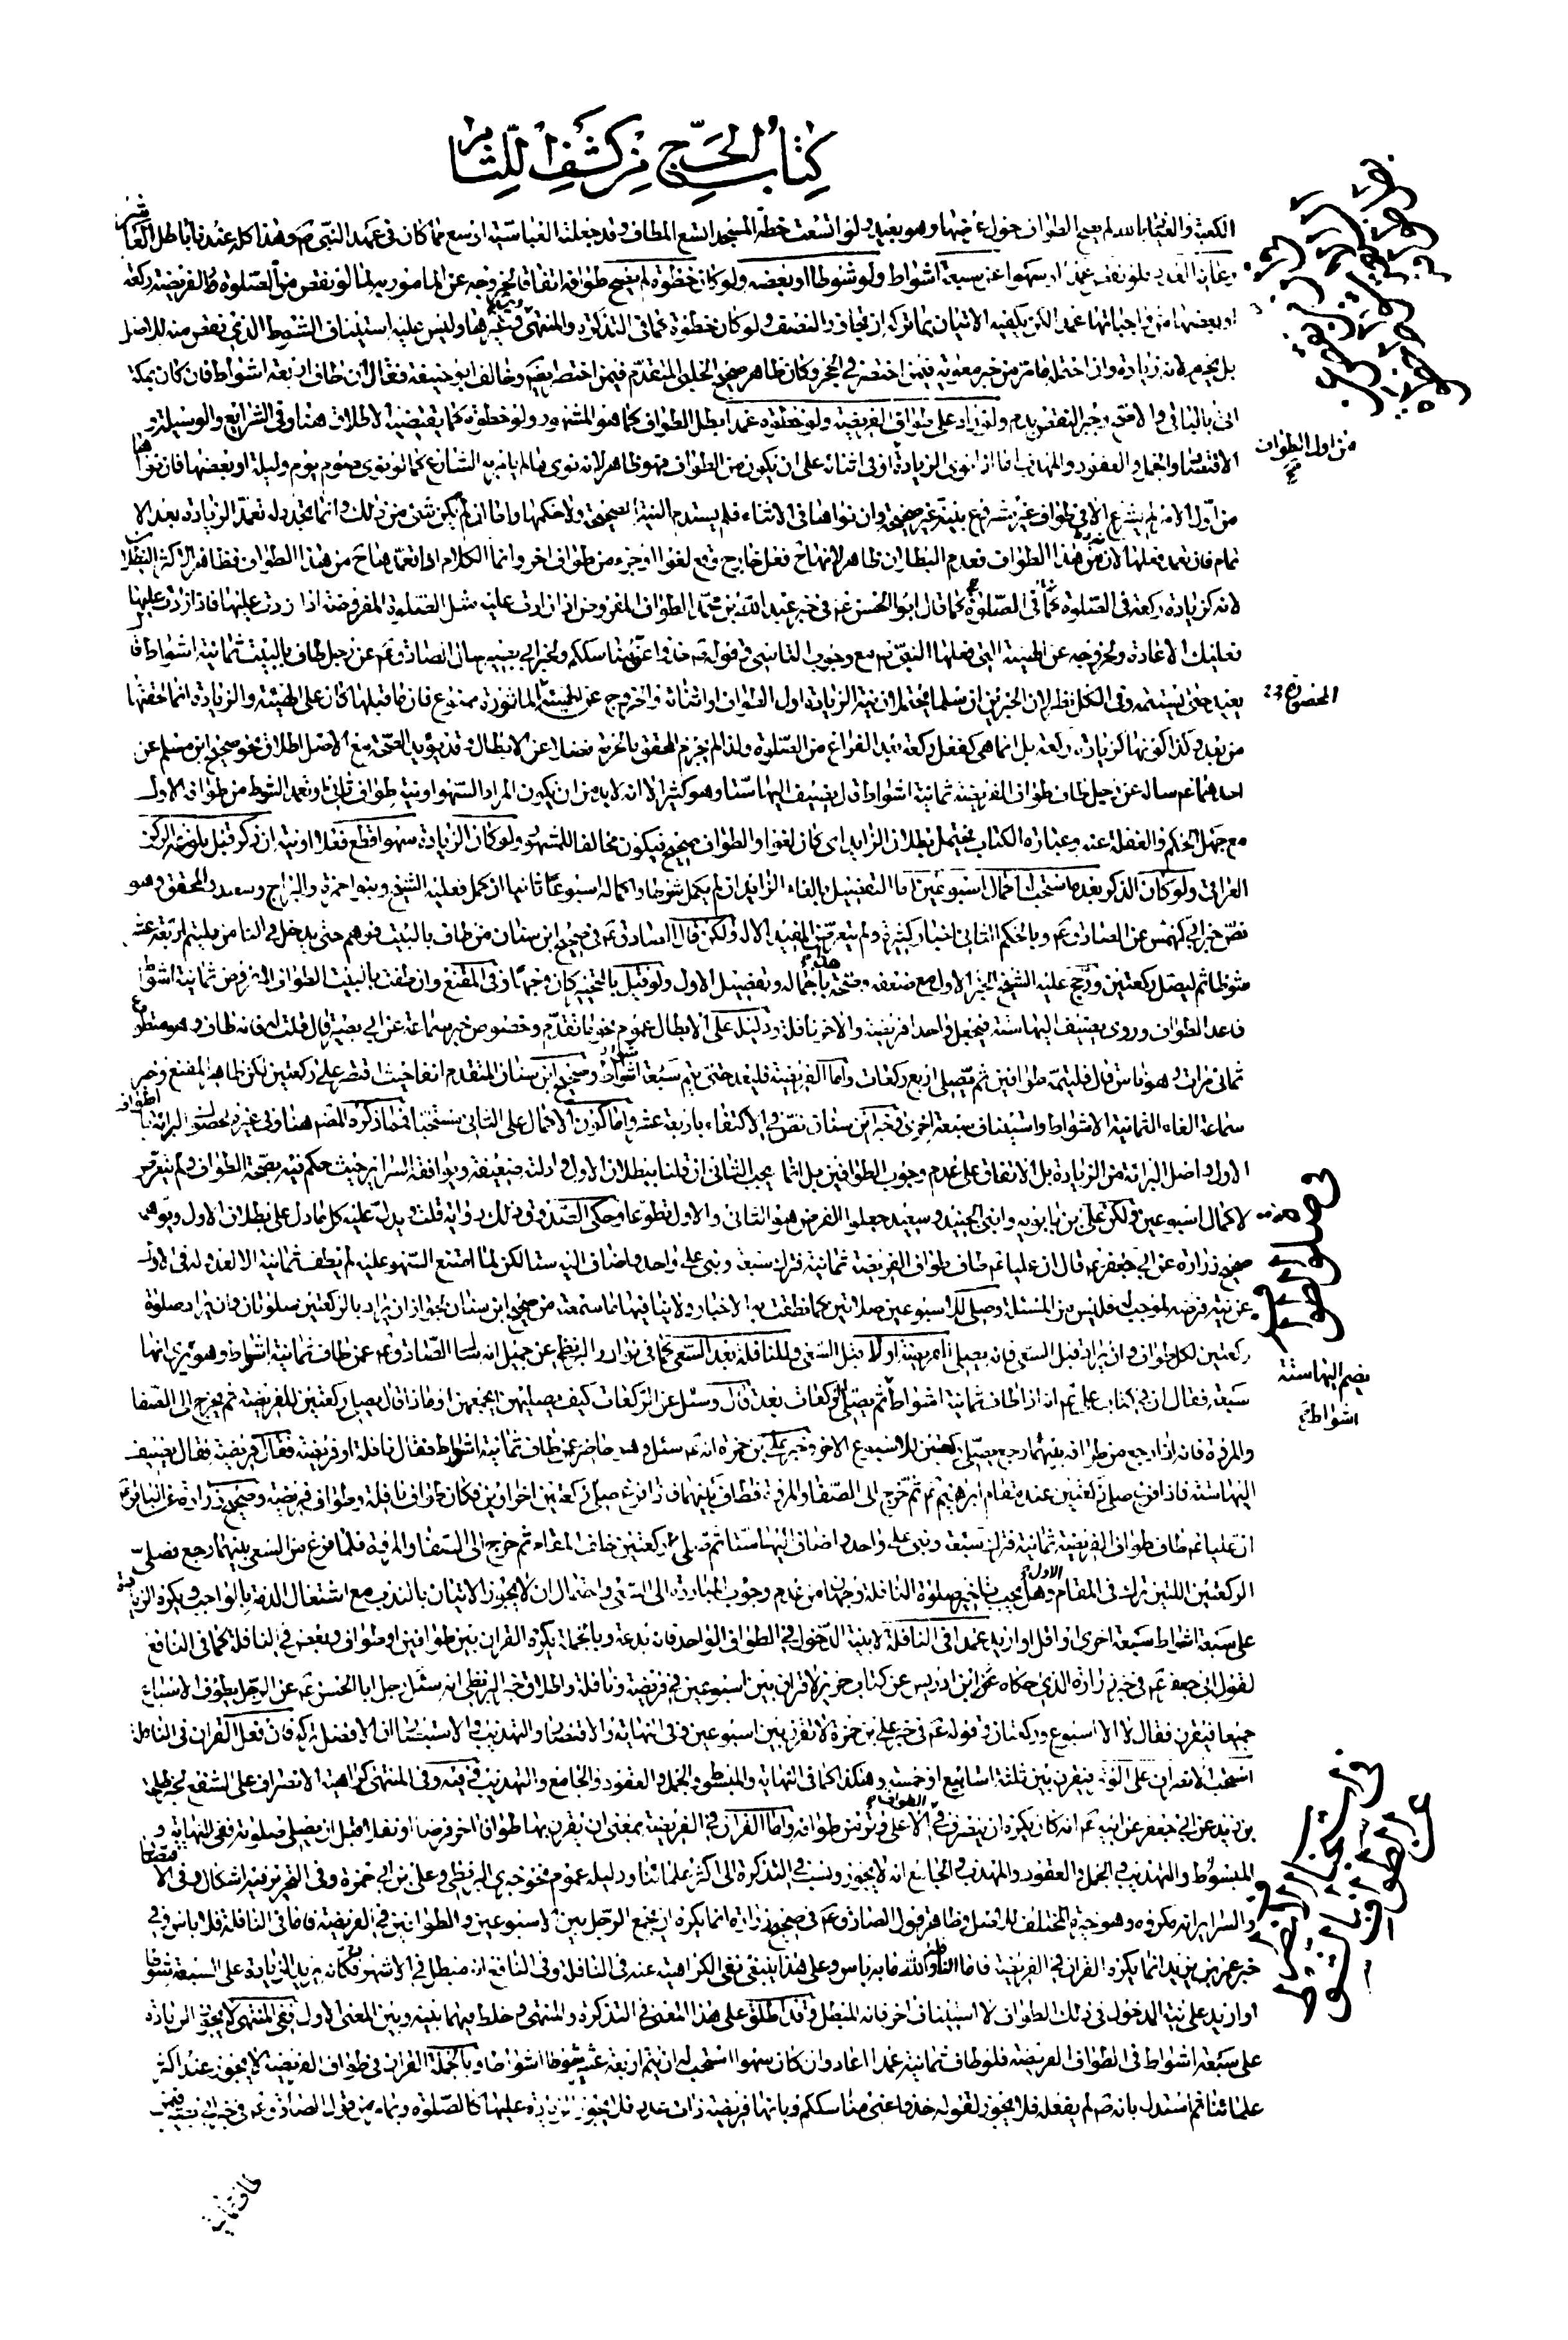 كتاب الحج من كشف اللثام
الكعبة والعياذ بالله لم يصح الطواف حول عرصتها وهو بعيد ولو اتسعت خطة المسجد اتسع المطاف وقد جعلته العباسية اوسع مما كان في عهد النبي ص وهذا كله عندنا باطل العاشر
رعاية العدد فلو نقص عمدا او سهوا عن سبعة اشواط ولو شوطا او بعضه ولو كان خطوة لم يصح طوافه اتفاقا لخروجه عن المامور به لما لو نقص من الصلوة الفريضة ركعة
او بعضها من واجباتها عمدا لكن يكفيه الاتيان بما تركه ان تجاوز النصف ولو كان خطوة كما في التذكرة والمنتهى وغيرها وليس عليه استيناف الشوط الذي نقص منه للاصل
بل يحرم لانه زيادة وان احتمل ما مر من خبر معوية فيمن اختصر في الحجر وكان ظاهر صحيح الحلبي المتقدم فيمن اختصر وخالف ابو حنيفة فقال ان طاف اربعة اشواط فان كان بمكة
اتى بالباقي والا فقد جبر النقص بدم ولو زاد على طواف الفريضة ولو خطوة عمدا بطل الطواف كما هو المشهور ولو خطوة كما يقتضيه الاطلاق هنا وفي الشرايع والوسيلة و
الاقتصاد والجمل والعقود والمهذب اما اذا نوى الزيادة او في اثنائه على ان يكون من الطواف فهو ظاهر لانه نوى ما لم يامر به الشارع كما لو نوى صوم يوم وليلة او بعضها فان نواها
من اول الامر لم يشرع الا في طواف غير مشروع بنية غير صحيحة وان نواها في الاثناء فلم يستدم النية الصحيحة ولا حكمها واما ان لم يكن شئ من ذلك وانما تجدد له تعمد الزيادة بعد الا
تمام فان تعمد فعلها لا من هذا الطواف فعدم البطلان ظاهر لانها ح فعل خارج وقع لغوا او جزء من طواف اخر وانما الكلام اذا تعمدها ح من هذا الطواف فظاهر الاكثر البطلان
لانه كزيادة ركعة في الصلوة كما قال ابو الحسن ع في خبر عبد الله بن محمد الطواف المفروض اذا زدت عليه مثل الصلوة المفروضة اذا زدت عليها فاذا زدت عليها
فعليك الاعادة ولخروجه عن الهيئة التي فعلها النبي ص مع وجوب التاسي وقوله ص خذوا عني مناسككم ولخبر ابي بصير سال الصادق ع عن رجل طاف بالبيت ثمانية اشواط قا
يعيد حتى يستتمه وفي الكل نظر لان الخبرين ان سلما يحتملان نية الزيادة اول الطواف او اثنائه والخروج عن الهيئة الماثورة ممنوع فان ما قبلها كان على الهيئة والزيادة انما خفتها
من بعد وكذا كونها كزيادة ركعة بل انما هي كفعل ركعة بعد الفراغ من الصلوة ولذا لم يجزم المحقق بالحرمة فضلا عن الابطال وقد يؤيد الصحة مع الاصل اطلاق نحو صحيح ابن مسلم عن
احدهما ع سال عن رجل طاف طواف الفريضة ثمانية اشواط قال يضيف اليها ستا وهو كثير الا انه لا بد من ان يكون المراد السهو او نية طواف ثان او تعمد الشوط من طوافه الاول
مع جهل الحكم والغفلة عنه وعبارة الكتاب يحتمل بطلان الزايد اى كان لغوا والطواف صحيح فيكون مخالفا للمشهور ولو كان الزيادة سهوا قطع فعلا او نية ان ذكر قبل بلوغ الركن
العراقي ولو كان الذكر بعده استحب اكمال اسبوعين اما التفصيل بالغاء الزايد ان لم يكمل شوطا واكماله اسبوعا ثانيا ان كمل فعليه الشيخ وبنو حمزة والبراج وسعيد والمحقق وهو
نص خبر ابي كهمس عن الصادق ع وبالحكم الثاني اخبار كثيرة ولم يتعرض المفيد الاله ولكن قال الصادق ع في صحيح ابن سنان من طاف بالبيت فوهم حتى يدخل في الثامن فليتم اربعة عشر
شوطا ثم ليصل ركعتين ورجح عليه الشيخ الخبر الاول مع ضعفه وصحته باجمال هذا وتفصيل الاول ولو قيل بالتخيير كان وجها وفي المقنع وان طفت بالبيت الطواف المفروض ثمانية اشواط
فاعد الطواف وروى يضيف اليها ستة فيجعل واحدا فريضة والاخر نافلة ودليله على الابطال عموم نحو ما تقدم وخصوص خبر سماعة عن ابي بصير قال قلت له فانه طاف وهو متطوع
ثماني مرات وهو ناس قال فليتمه طوافين ثم يصلي اربع ركعات واما الفريضة فليعد حتى يتم سبعة اشواط وصحيح ابن سنان المتقدم انفا حيث اقتصر على ركعتين لكن ظاهر المقنع وخبر
سماعة الغاء الثمانية الاشواط واستيناف سبعة اخرى وخبر ابن سنان نص في الاكتفاء باربعة عشر واما كون الاكمال على الثاني مستحبا فما ذكره المصنف هنا وفي غيره لحصول البرائة بالطواف
الاول واصل البرائة من الزيادة بل الاتفاق على عدم وجوب الطوافين بل انما يجب الثاني ان قلنا ببطلان الاول وادلته ضعيفة ويوافقه السراير حيث حكم فيه بصحة الطواف ولم يتعرض
لاكمال اسبوعين ولكن على بن بابويه وابنى الجنيد وسعيد جعلوا الفرض هو الثاني والاول تطوعا وحكى الصدوق في ذلك رواية قلت يدل عليه كل ما دل على بطلان الاول ويؤيده
صحيح زرارة عن ابي جعفر ع قال ان عليا ع طاف طواف الفريضة ثمانية فترك سبعة وبنى على واحد واضاف اليه ستا لكن لما امتنع السهو عليه لم يطف ثمانية الا لعدوله في الاول
عن نية فرضه لموجب له فليس من المسئلة وصلى للاسبوعين صلاتين كما نطقت به الاخبار ولا ينافيها ما سمعته من صحيح ابن سنان لجواز ان يراد بالركعتين صلوتان وان يراد صلوة
ركعتين لكل طواف وان يراد قبل السعي فانه يصلي للفريضة اولا قبل السعي وللنافلة بعد السعي كما في نوادر البزنطي عن جميل انه سال الصادق ع عمن طاف ثمانية اشواط وهو يرى انها
سبعة فقال ان في كتاب على ع انه اذا طاف ثمانية اشواط ثم يصلي الركعات بعد قال وسئل عن الركعات كيف يصليهن ايجمعهن او ماذا قال يصلي ركعتين للفريضة ثم يخرج الى الصفا
والمروة فاذا رجع من طوافه بينهما رجع يصلي ركعتين للاسبوع الاخر وخبر على بن حمزة انه ع سئل وهو حاضر عمن طاف ثمانية اشواط فقال نافلة او فريضة فقال فريضة فقال يضيف
اليها ستة فاذا فرغ صلى ركعتين عند مقام ابرهيم ع ثم خرج الى الصفا والمروة فطاف بينهما فاذا فرغ صلى ركعتين اخراوين فكان طواف نافلة وطواف فريضة وصحيح زرارة عن الباقر ع
ان عليا ع طاف طواف الفريضة ثمانية فترك سبعة وبنى على واحد واضاف اليها ستا ثم صلى ركعتين خلف المقام ثم خرج الى الصفا والمروة فلما فرغ من السعي بينهما رجع فصلى
الركعتين اللتين ترك في المقام الاول وهل يجب تاخير صلوة النافلة وجهان من عدم وجوب المبادرة الى السعي واحتمال ان لا يجوز الاتيان بالندب مع اشتغال الذمة بالواجب ويكره الزيادة
على سبعة اشواط سبعة اخرى او اقل او ازيد عمدا في النافلة لا بنية الدخول في الطواف الواحد فانه بدعة وبالجملة يكره القران بين طوافين او طواف وبعض في النافلة كما في النافع
لقول ابي جعفر ع في خبر زرارة الذي حكاه ابن ادريس عن كتاب حريز لا قران بين اسبوعين في فريضة ونافلة واطلاق خبر البزنطي انه سئل رجل ابا الحسن ع عن الرجل يطوف الاسباع
جميعا فيقرن فقال لا الا اسبوع وركعتان وقوله ع في خبر على بن حمزة لا تقرن بين اسبوعين وفي النهاية والاقتصاد والتهذيب والاستبصار ان الافضل تركه فان فعل القران في النافلة
استحب الانصراف على الوتر فيقرن بين ثلثة اسابيع او خمسة وهكذا كما في النهاية والمبسوط والجمل والعقود والجامع والتهذيب وفيه وفي المنتهى كراهية الانصراف على الشفع لخبر طلحة
بن زيد عن ابي جعفر عن ابيه ع انه كان يكره ان ينصرف في الطواف الا على وتر من طوافه واما القران في الفريضة بمعنى ان يقرن بها طوافا اخر فرضا او نفلا قبل ان يصلي صلوته ففي النهاية و
المبسوط والتهذيب والجمل والعقود والمهذب والجامع انه لا يجوز ونسب في التذكرة الى اكثر علمائنا ودليله عموم نحو خبري البزنطي وعلى بن ابي حمزة وفي التحرير فيه اشكال وفي الا
والسراير انه مكروه وهو خيرة المختلف للاصل وظاهر قول الصادق ع في صحيح زرارة انما يكره ان يجمع الرجل بين الاسبوعين والطوافين في الفريضة فاما في النافلة فلا باس وفي
خبر عمر بن يزيد انما يكره القران في الفريضة فاما النافلة فلا والله ما به باس وعلى هذا ينبغي نفي الكراهية عنه في النافلة وفي النافع انه مبطل في الاشهر فكانه يريد الزيادة على السبعة شوطا
او ازيد على نية الدخول في ذلك الطواف لا استيناف اخر فانه المبطل وقد اطلق على هذا المعنى في التذكرة والمنتهى وخلط فيهما بينه وبين المعنى الاول ففي المنتهى لا يجوز الزيادة
على سبعة اشواط في الطواف الفريضة فلو طاف ثمانية عمدا اعاد وان كان سهوا استحب له ان يتم اربعة عشر شوطا وبالجملة القران في طواف الفريضة لا يجوز عند اكثر
علمائنا ثم استدل بانه ص لم يفعله فلا يجوز لقوله خذوا عني مناسككم وبانها فريضة ذات عدد فلا يجوز الزيادة عليها كالصلوة وبما مر من قول الصادق ع في خبر ابي بصير فمن
من اول الطواف
صح
المخصوص
يضم اليها ستة
اشواط